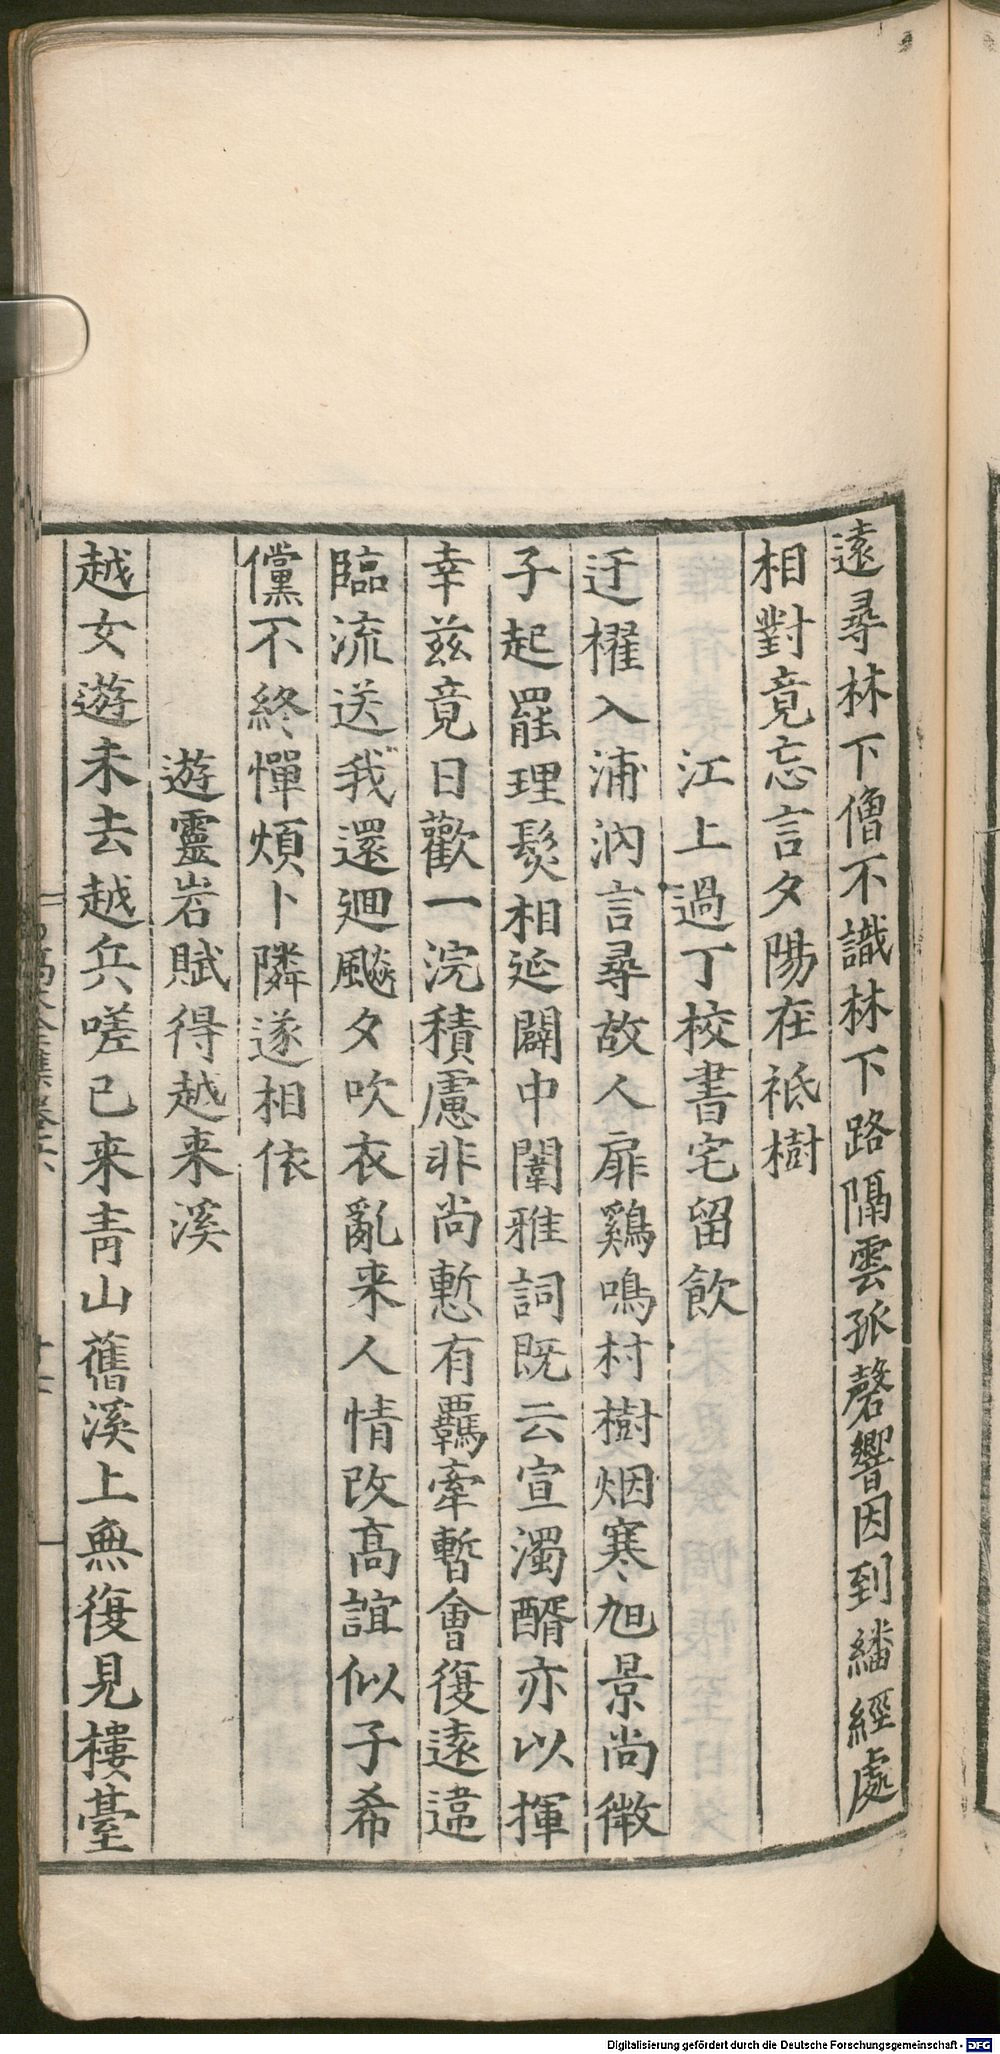 遠尋林下僧不識林下路隔雲孤磬響因到繙經處
相對竟忘言夕陽在祗樹
江上過丁校書宅留飲
迂櫂入浦汭言尋故人扉鷄鳴村樹烟寒旭景尚微
子起罷理髮相延闢中闈雅詞既云宣濁醑亦以揮
幸兹竟日歡一浣積慮非尚慙有羈牽暫會復遠違
臨流送我還廻飈夕吹衣亂来人情改髙誼似子希
儻不終憚煩卜隣遂相依
遊靈岩賦得越来溪
越女遊未去越兵嗟已来青山舊溪上無復見樓臺
Digitalisierung gefördert durch die Deutsche Forschungsgemeinschaft - DFG